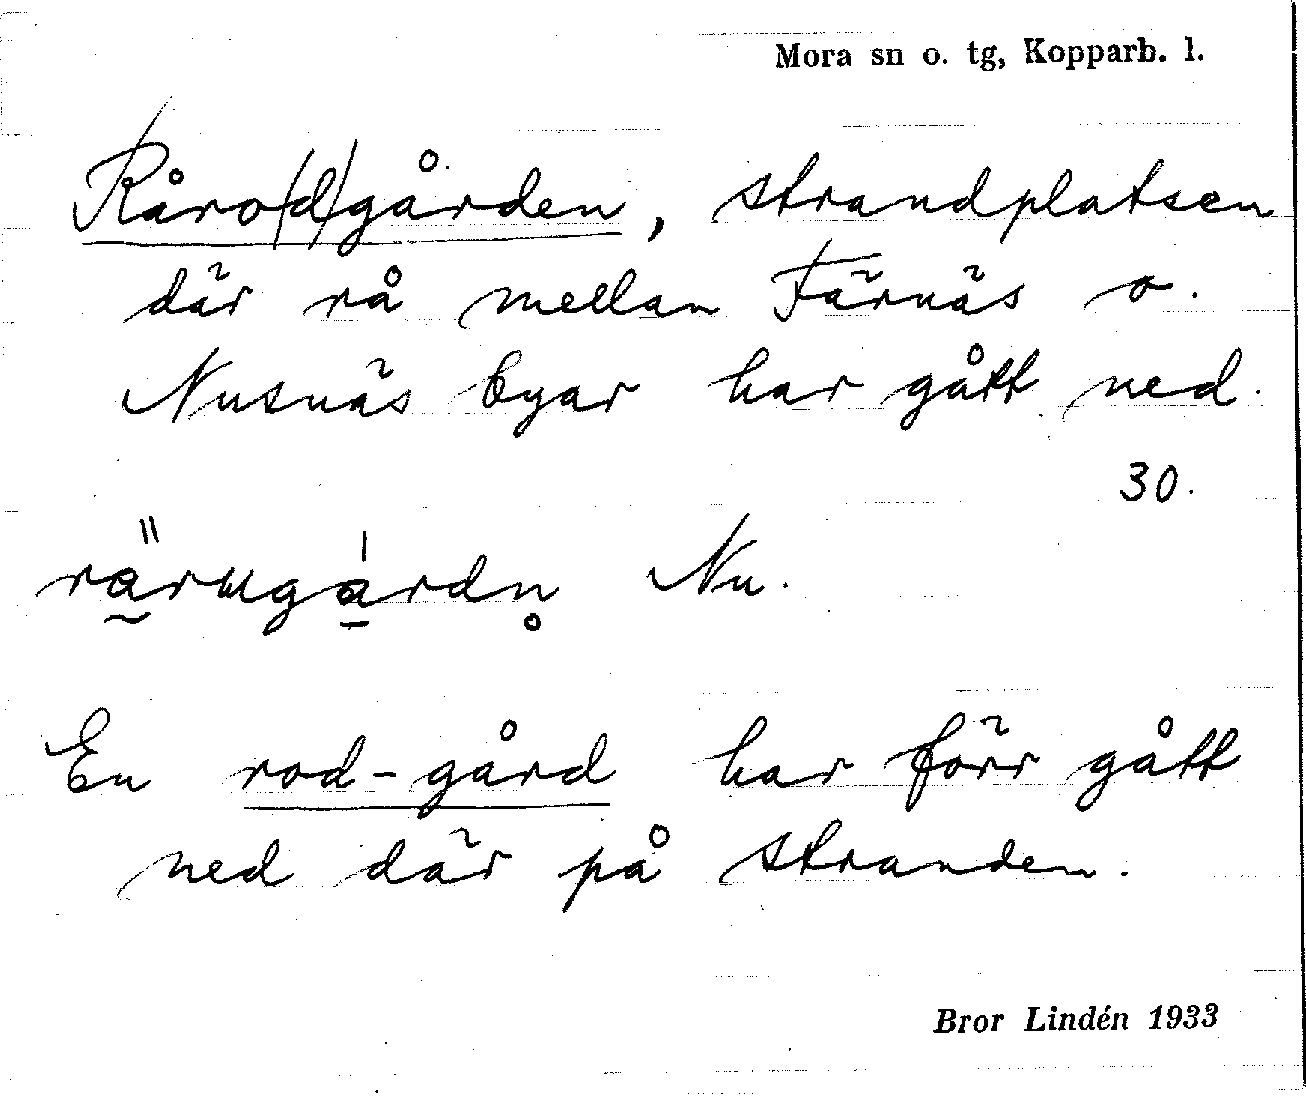 Mora sn o. tg, Kopparb. l.
Råro(d)gården, strandplatsen
där rå mellan Färnäs o.
Nusnäs byar har gått ned.
30.
rärugårdn̥ Nu.
En rod-gård har förr gått
ned där på stranden.
Bror Lindén 1933